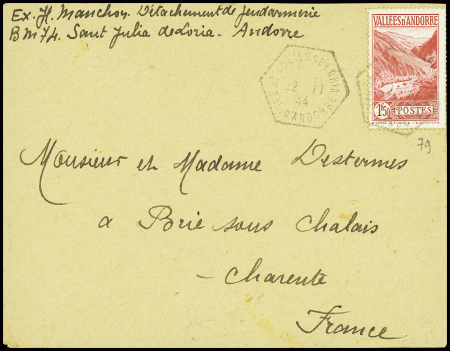 Ex. Jl. Manchon. Détachement de Gendarmerie
BM 74. Sant Julia de Loria. Andorre
VALLÉES D'ANDORRE
1F50 POSTES
44
VAL D'ANDORRE
79
Monsieur et Madame Destermes
a Brie sous Chalais
- Charente
France